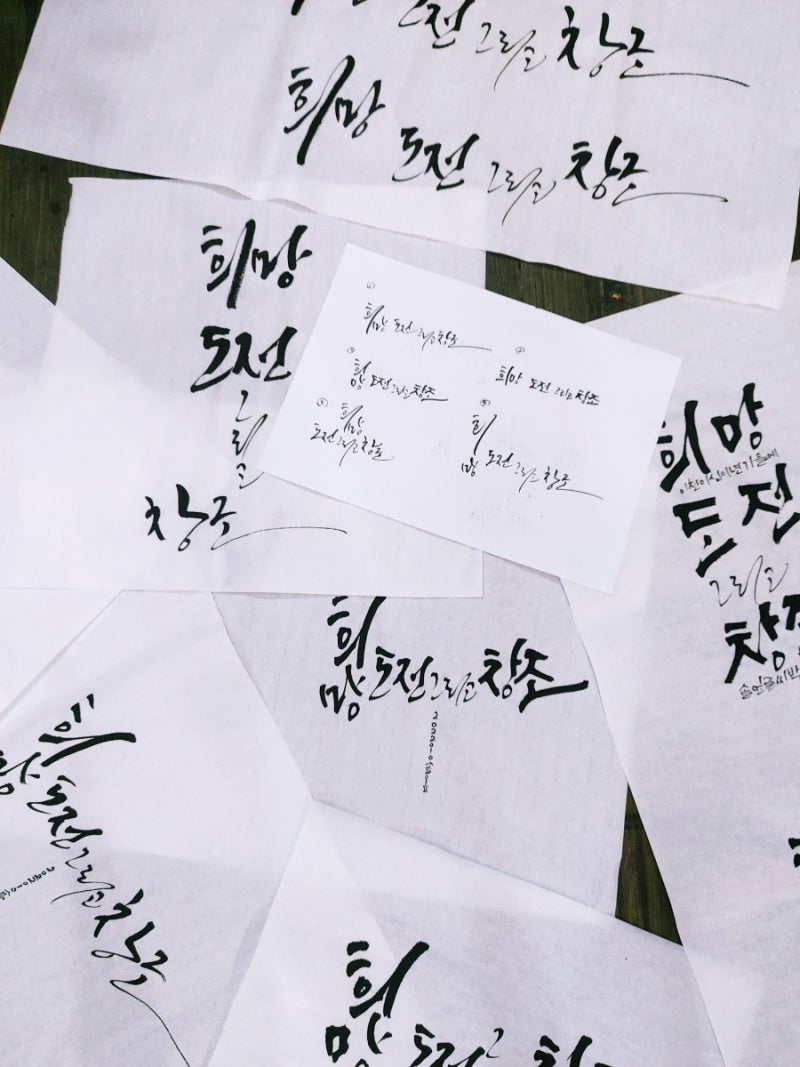 전 그리고 창조
희망 도전 그리고 창조
희망
도전
그리고
창조
①
희망 도전 그리고 창조
③
희망 도전 그리고 창조
②
희망 도전 그리고 창조
⑤
희망
도전 그리고 창조
④
희망 도전 그리고 창조
희망
이천이십이년가을에
도전
그리고
창조
희망 도전 그리고 창조
희망 도전 그리고 창조
희망